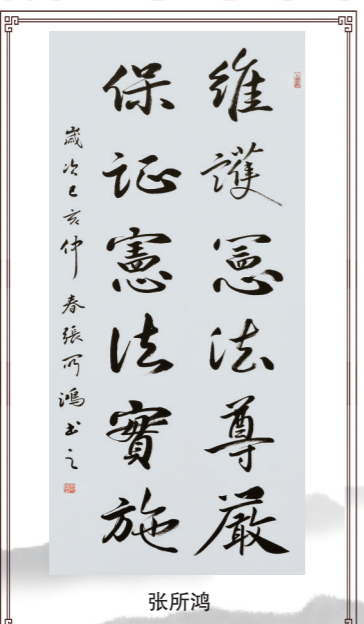 維護憲法尊嚴
保证憲法實施
歲次己亥仲春張所鴻書之
张所鸿